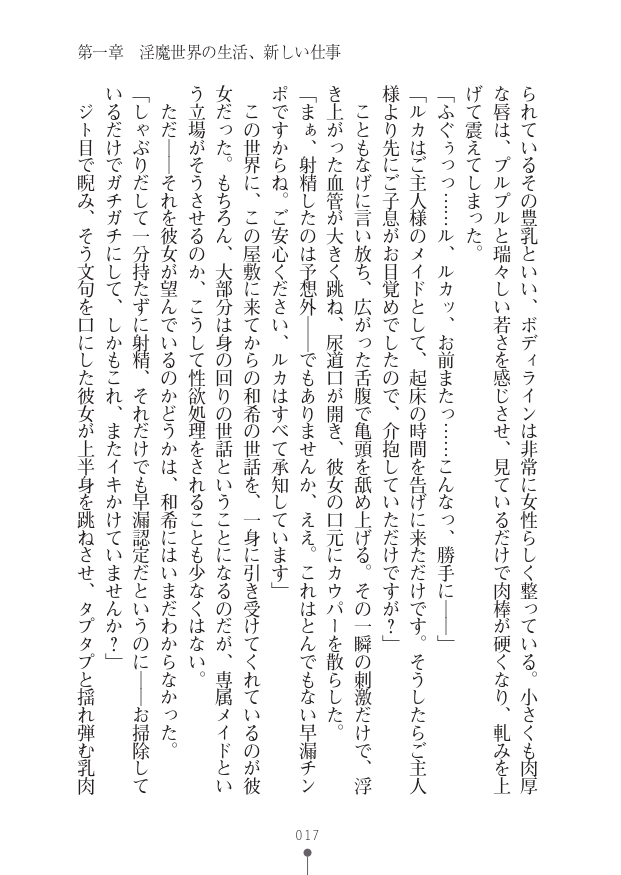 第一章　淫魔世界の生活、新しい仕事
られているその豊乳といい、ボディラインは非常に女性らしく整っている。小さくも肉厚
な唇は、プルプルと瑞々しい若さを感じさせ、見ているだけで肉棒が硬くなり、軋みを上
げて震えてしまった。
「ふぐぅっっ……ル、ルカッ、お前またっ……こんなっ、勝手に――」
「ルカはご主人様のメイドとして、起床の時間を告げに来ただけです。そうしたらご主人
様より先にご子息がお目覚めでしたので、介抱していただけですが？」
　こともなげに言い放ち、広がった舌腹で亀頭を舐め上げる。その一瞬の刺激だけで、浮
き上がった血管が大きく跳ね、尿道口が開き、彼女の口元にカウパーを散らした。
「まぁ、射精したのは予想外――でもありませんか、ええ。これはとんでもない早漏チン
ポですからね。ご安心ください、ルカはすべて承知しています」
　この世界に、この屋敷に来てからの和希の世話を、一身に引き受けてくれているのが彼
女だった。もちろん、大部分は身の回りの世話ということになるのだが、専属メイドとい
う立場がそうさせるのか、こうして性欲処理をされることも少なくはない。
　ただ――それを彼女が望んでいるのかどうかは、和希にはいまだわからなかった。
「しゃぶりだして一分持たずに射精、それだけでも早漏認定だというのに――お掃除して
いるだけでガチガチにして、しかもこれ、またイキかけていませんか？」
　ジト目で睨み、そう文句を口にした彼女が上半身を跳ねさせ、タプタプと揺れ弾む乳肉
017